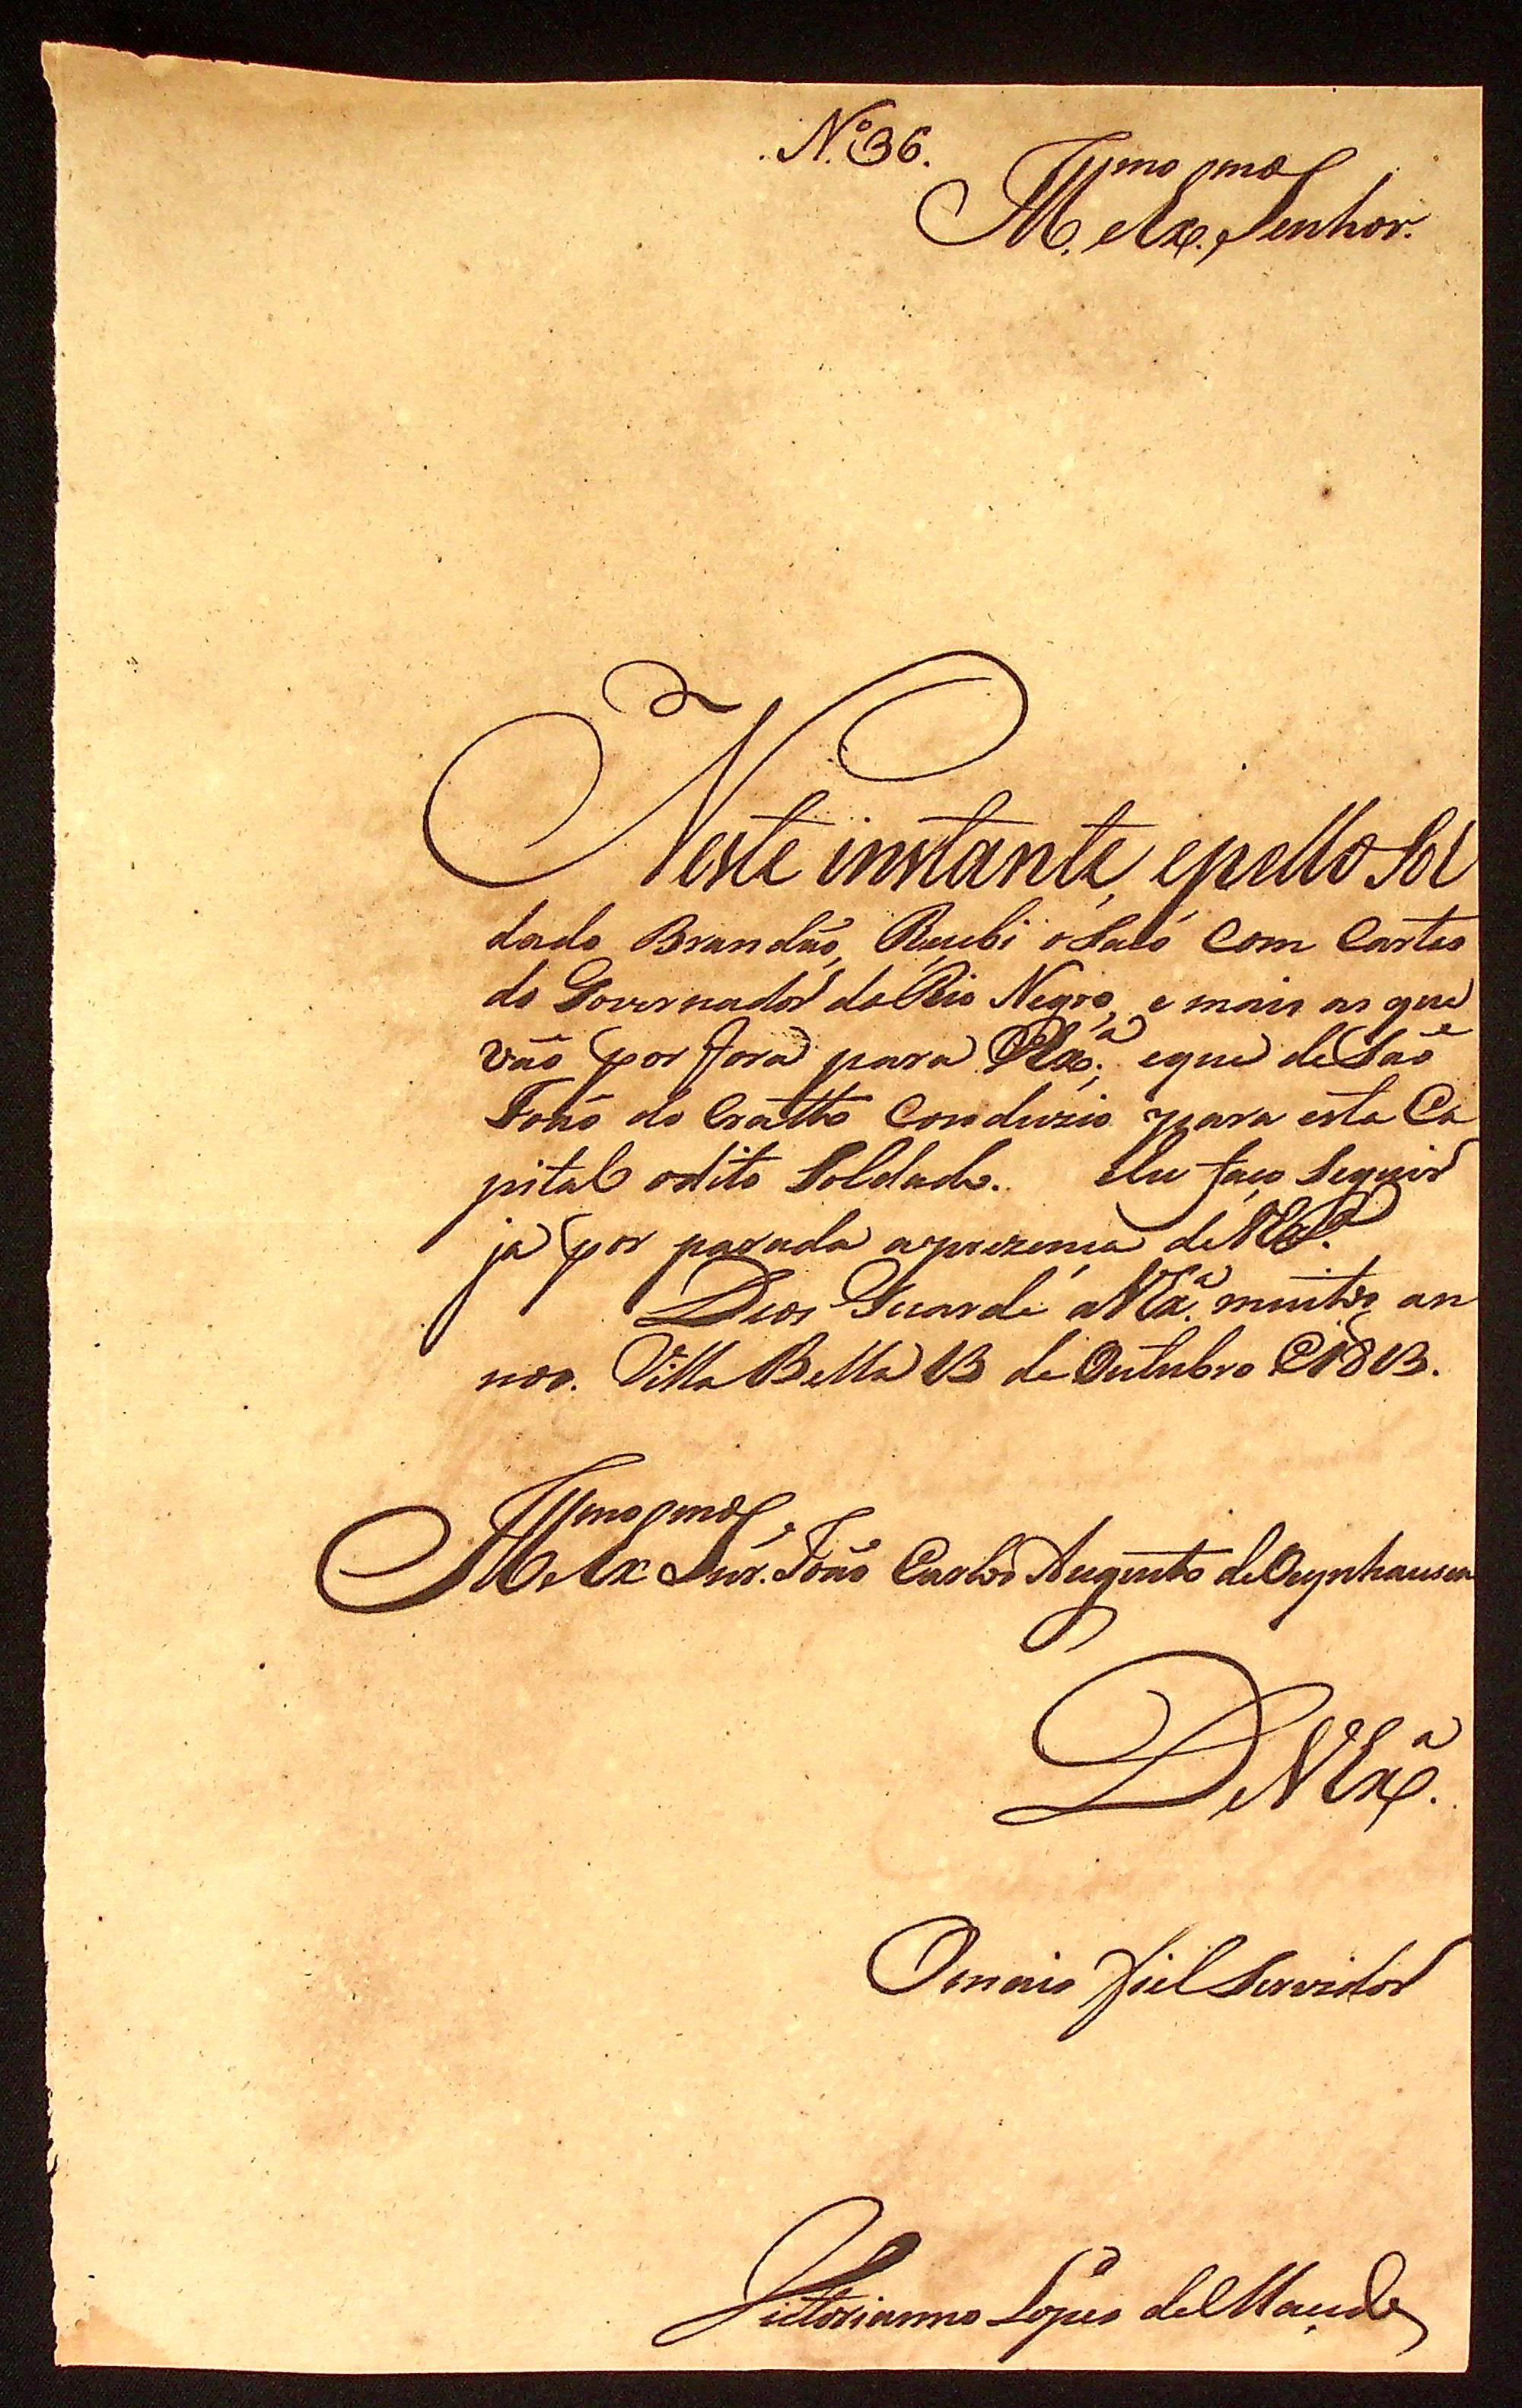 N.º 36.
Ill.mo e Ex.mo Senhor.
Neste instante, epello Sol
dado Brandão, Recebi o Saco com Cartas
do Governador do Rio Negro, e mais as que
vão por fora para VEx.ª, eque de São
João do Cratto Conduzio para esta Ca
pital odito Soldado. Eu faço Seguir
já por parada aprezença de VEx.ª
Deos Guarde a VEx.ª muitos an
nos. Villa Bella 13 de Outubro de 1813.
Ill.mo e Ex.mo Snr. João Carlos Augusto de Oeynhausen
De VEx.ª
O mais fiel Servidor
Victorianno Lopes de